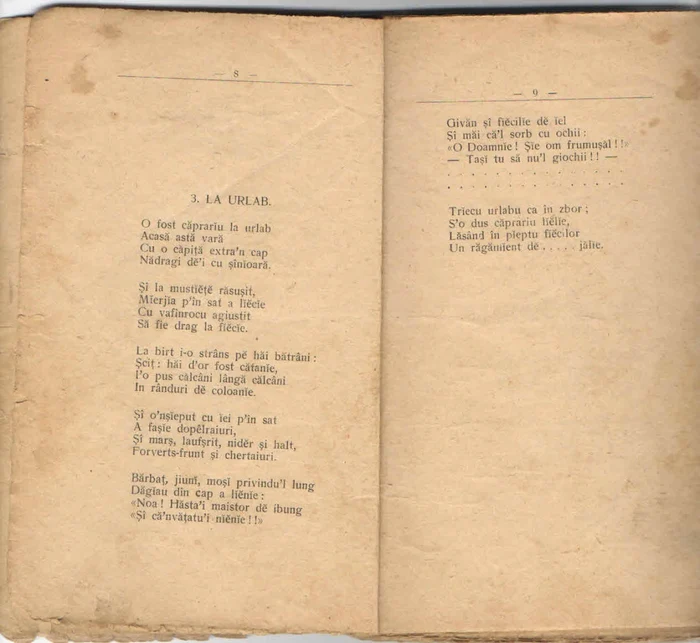 — 8 —
3. LA URLAB.
O fost căprariu la urlab
Acasă astă vară
Cu o căpiță extra'n cap
Nădragi dĕ'i cu șinioară.
Și la mustiĕțĕ răsușit,
Mierjĭa p'in sat a lĭĕcĭe
Cu vafinrocu agiustit
Să fie drag la fĭĕcĭe.
La birt i-o strâns pĕ hăi bătrâni :
Șciț : hăi d'or fost cătanĭe,
I'o pus călcâni lângă călcâni
In rânduri dĕ coloanĭe.
Și o'nșieput cu ĭei p'in sat
A fașie dopĕlraiuri,
Și marș, laufșrit, nidĕr și halt,
Forverts-frunt și chertaiuri.
Bărbaț, jiunĭ, moși privindu'l lung
Dăgĭau din cap a lĭĕnĭe :
«Noa ! Hăsta'i maistor dĕ ibung
«Și că'nvățatu'i nĭĕnĭe ! !»
— 9 —
Givăn și fĭĕcilĭe dĕ ĭel
Și măi că'l sorb cu ochii :
«O Doamnĭe ! Șĭe om frumușăl ! !»
— Tași tu să nu'l giochii ! ! —
. . . . . . . . . . . .
. . . . . . . . . . . .
Trĭecu urlabu ca in zbor ;
S'o dus căprariu lĭĕlĭe,
Lăsând in pieptu fĭĕcilor
Un răgămient dĕ . . . . . jălĭe.